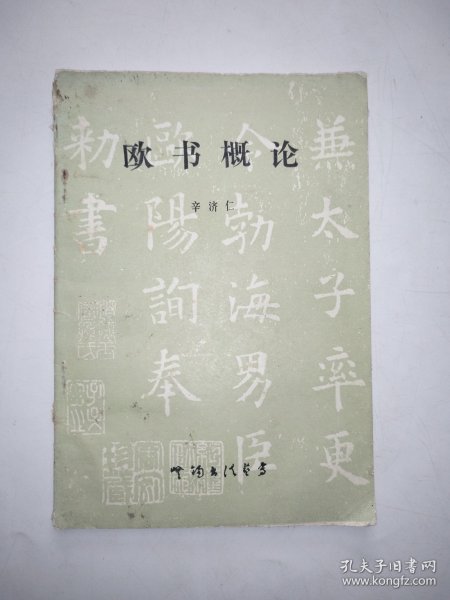 欧书概论
辛济仁
兼太子率更
令勃海男臣
欧陽詢奉
勅書
孔夫子旧书网
www.kongfz.com